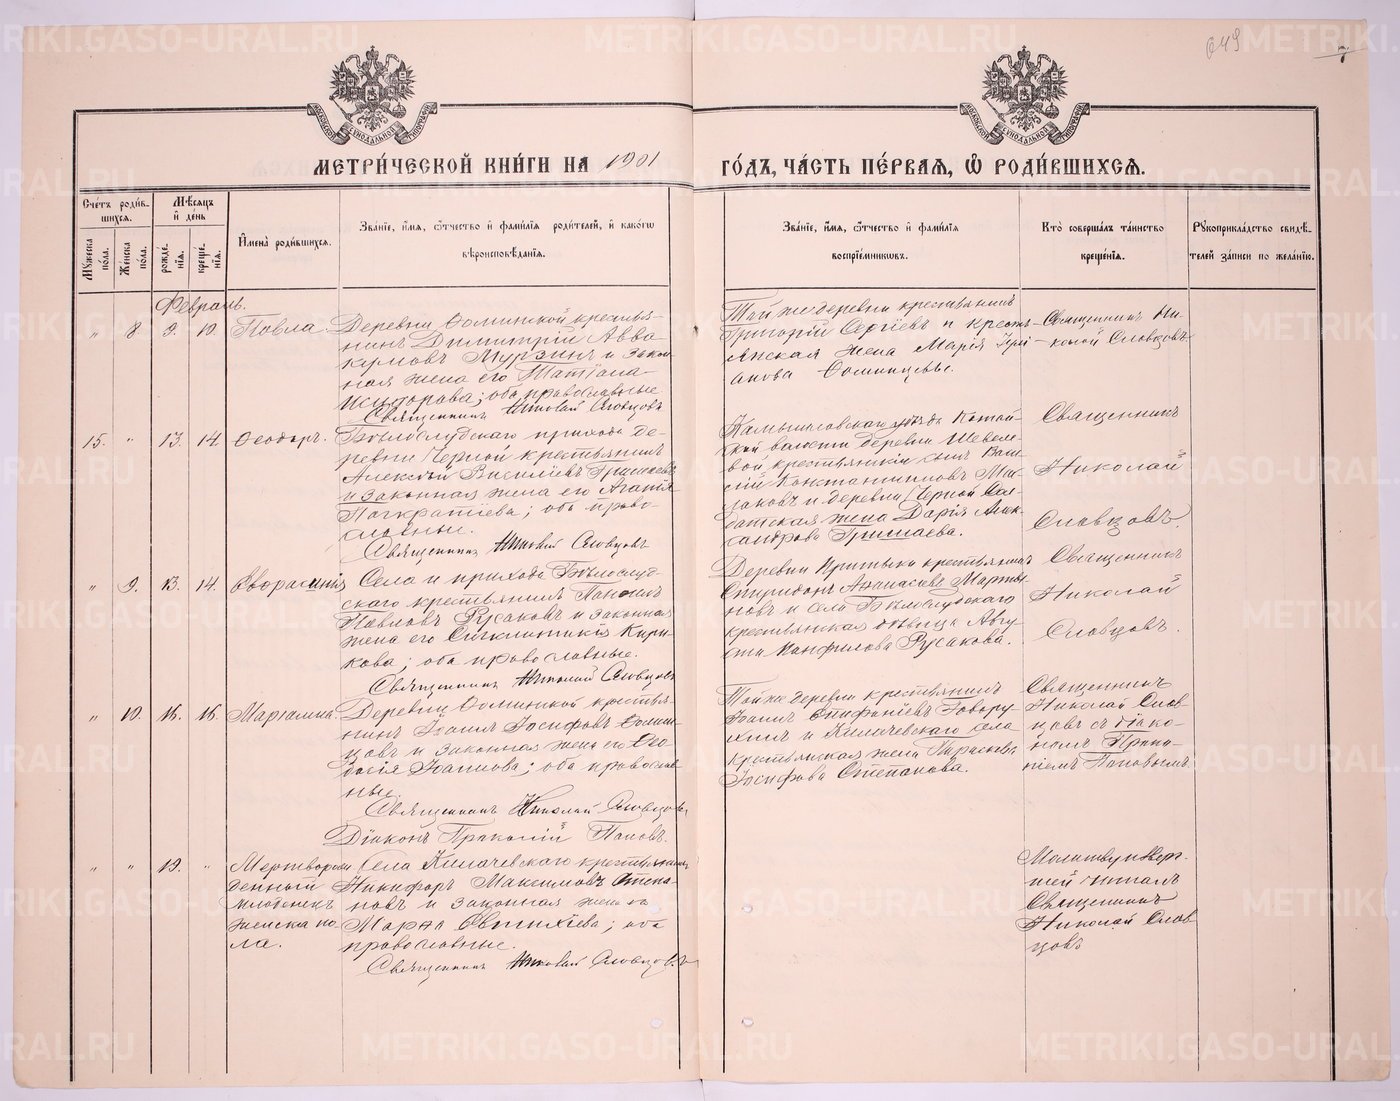 649
7
МЕТРИ́ЧЕСКОЙ КНИ́ГИ НА 1901
ГО́ДЪ, ЧА́СТЬ ПЕ́РВАЯ, Ѽ РОДИ́ВШИХСЯ.
Сче́тъ роди́в-
шихся.
Му́жеска по́ла.
Же́нска по́ла.
Мѣ́сяцъ и҆ де́нь
рожде́-
нїя.
креще́-
нїя.
И҆мена̀ роди́вшихся.
Зва́нїе, и҆́мя, ѻ҆́тчество и҆ фами́лїя роди́телей, и҆ како́гѡ
вѣроисповѣ́данїя.
Зва́нїе, и҆́мя, ѻ҆́тчество и҆ фами́лїя
воспрїе́мниковъ.
Кто̀ соверша́лъ та́инство
креще́нїя.
Рꙋкоприкла́дство свидѣ́-
телей за́писи по жела́нїю.
Февраль.
" 8 9. 10. Павла. Деревни Фоминской крестья-
нинъ Димитрій Авва-
кумовъ Мурзинъ и закон-
ная жена его Татіана
Исидорова; оба православные
Священникъ Николай Словцовъ
Той же деревни крестьянинъ
Григорій Сергіевъ и кресть-
янская жена Марія
Фоминцевы.
Священникъ Ни-
колай Словцовъ
15. " 13. 14. Ѳеодоръ. Бѣлослудскаго прихода де-
ревни Черной крестьянинъ
Алексѣй Василіевъ
и законная жена его Агапія
Панкратіева; оба право-
славные.
Священникъ Николай Словцовъ
Камышловскаго уѣзда
волости деревни
крестьянскій сынъ Васи-
лій Константиновъ
и деревни Черной сол-
датская жена Дарія Алек-
сандрова
Священникъ
Николай
Словцовъ.
" 9. 13. 14. Евфрасинія Села и прихода Бѣлослуд-
скаго крестьянинъ
Павловъ Русаковъ и законная
жена его Синклитикія Кири-
кова; оба православные.
Священникъ Николай Словцовъ
Деревни крестьянинъ
Спиридонъ Аѳанасіевъ Марты-
новъ и села Бѣлослудскаго
крестьянская дѣвица Авгу-
ста Панфилова Русакова.
Священникъ
Николай
Словцовъ.
" 10. 16. 16. Маріамна. Деревни Фоминской крестья-
нинъ Іоаннъ Іосифовъ Фомин-
цовъ и законная жена его Ѳео-
досія Іоаннова; оба православ-
ные.
Священникъ Николай Словцовъ
Діаконъ Прокопій Поповъ.
Той же деревни крестьянинъ
Іоаннъ Епифаніевъ Говору-
хинъ и Киличевскаго села
крестьянская жена Параскева
Іосифова Степанова.
Священникъ
Николай Слов-
цовъ съ діако-
номъ Проко-
піемъ Поповымъ
" " 19. " Мертворож-
денный
младенецъ
женска по-
ла.
Села Киличевскаго крестьянинъ
Никифоръ Максимовъ Степа-
новъ и законная жена его
Марѳа Евтихіева; оба
православные.
Священникъ Николай Словцовъ
Молитву
шей читалъ
Священникъ
Николай Слов-
цовъ